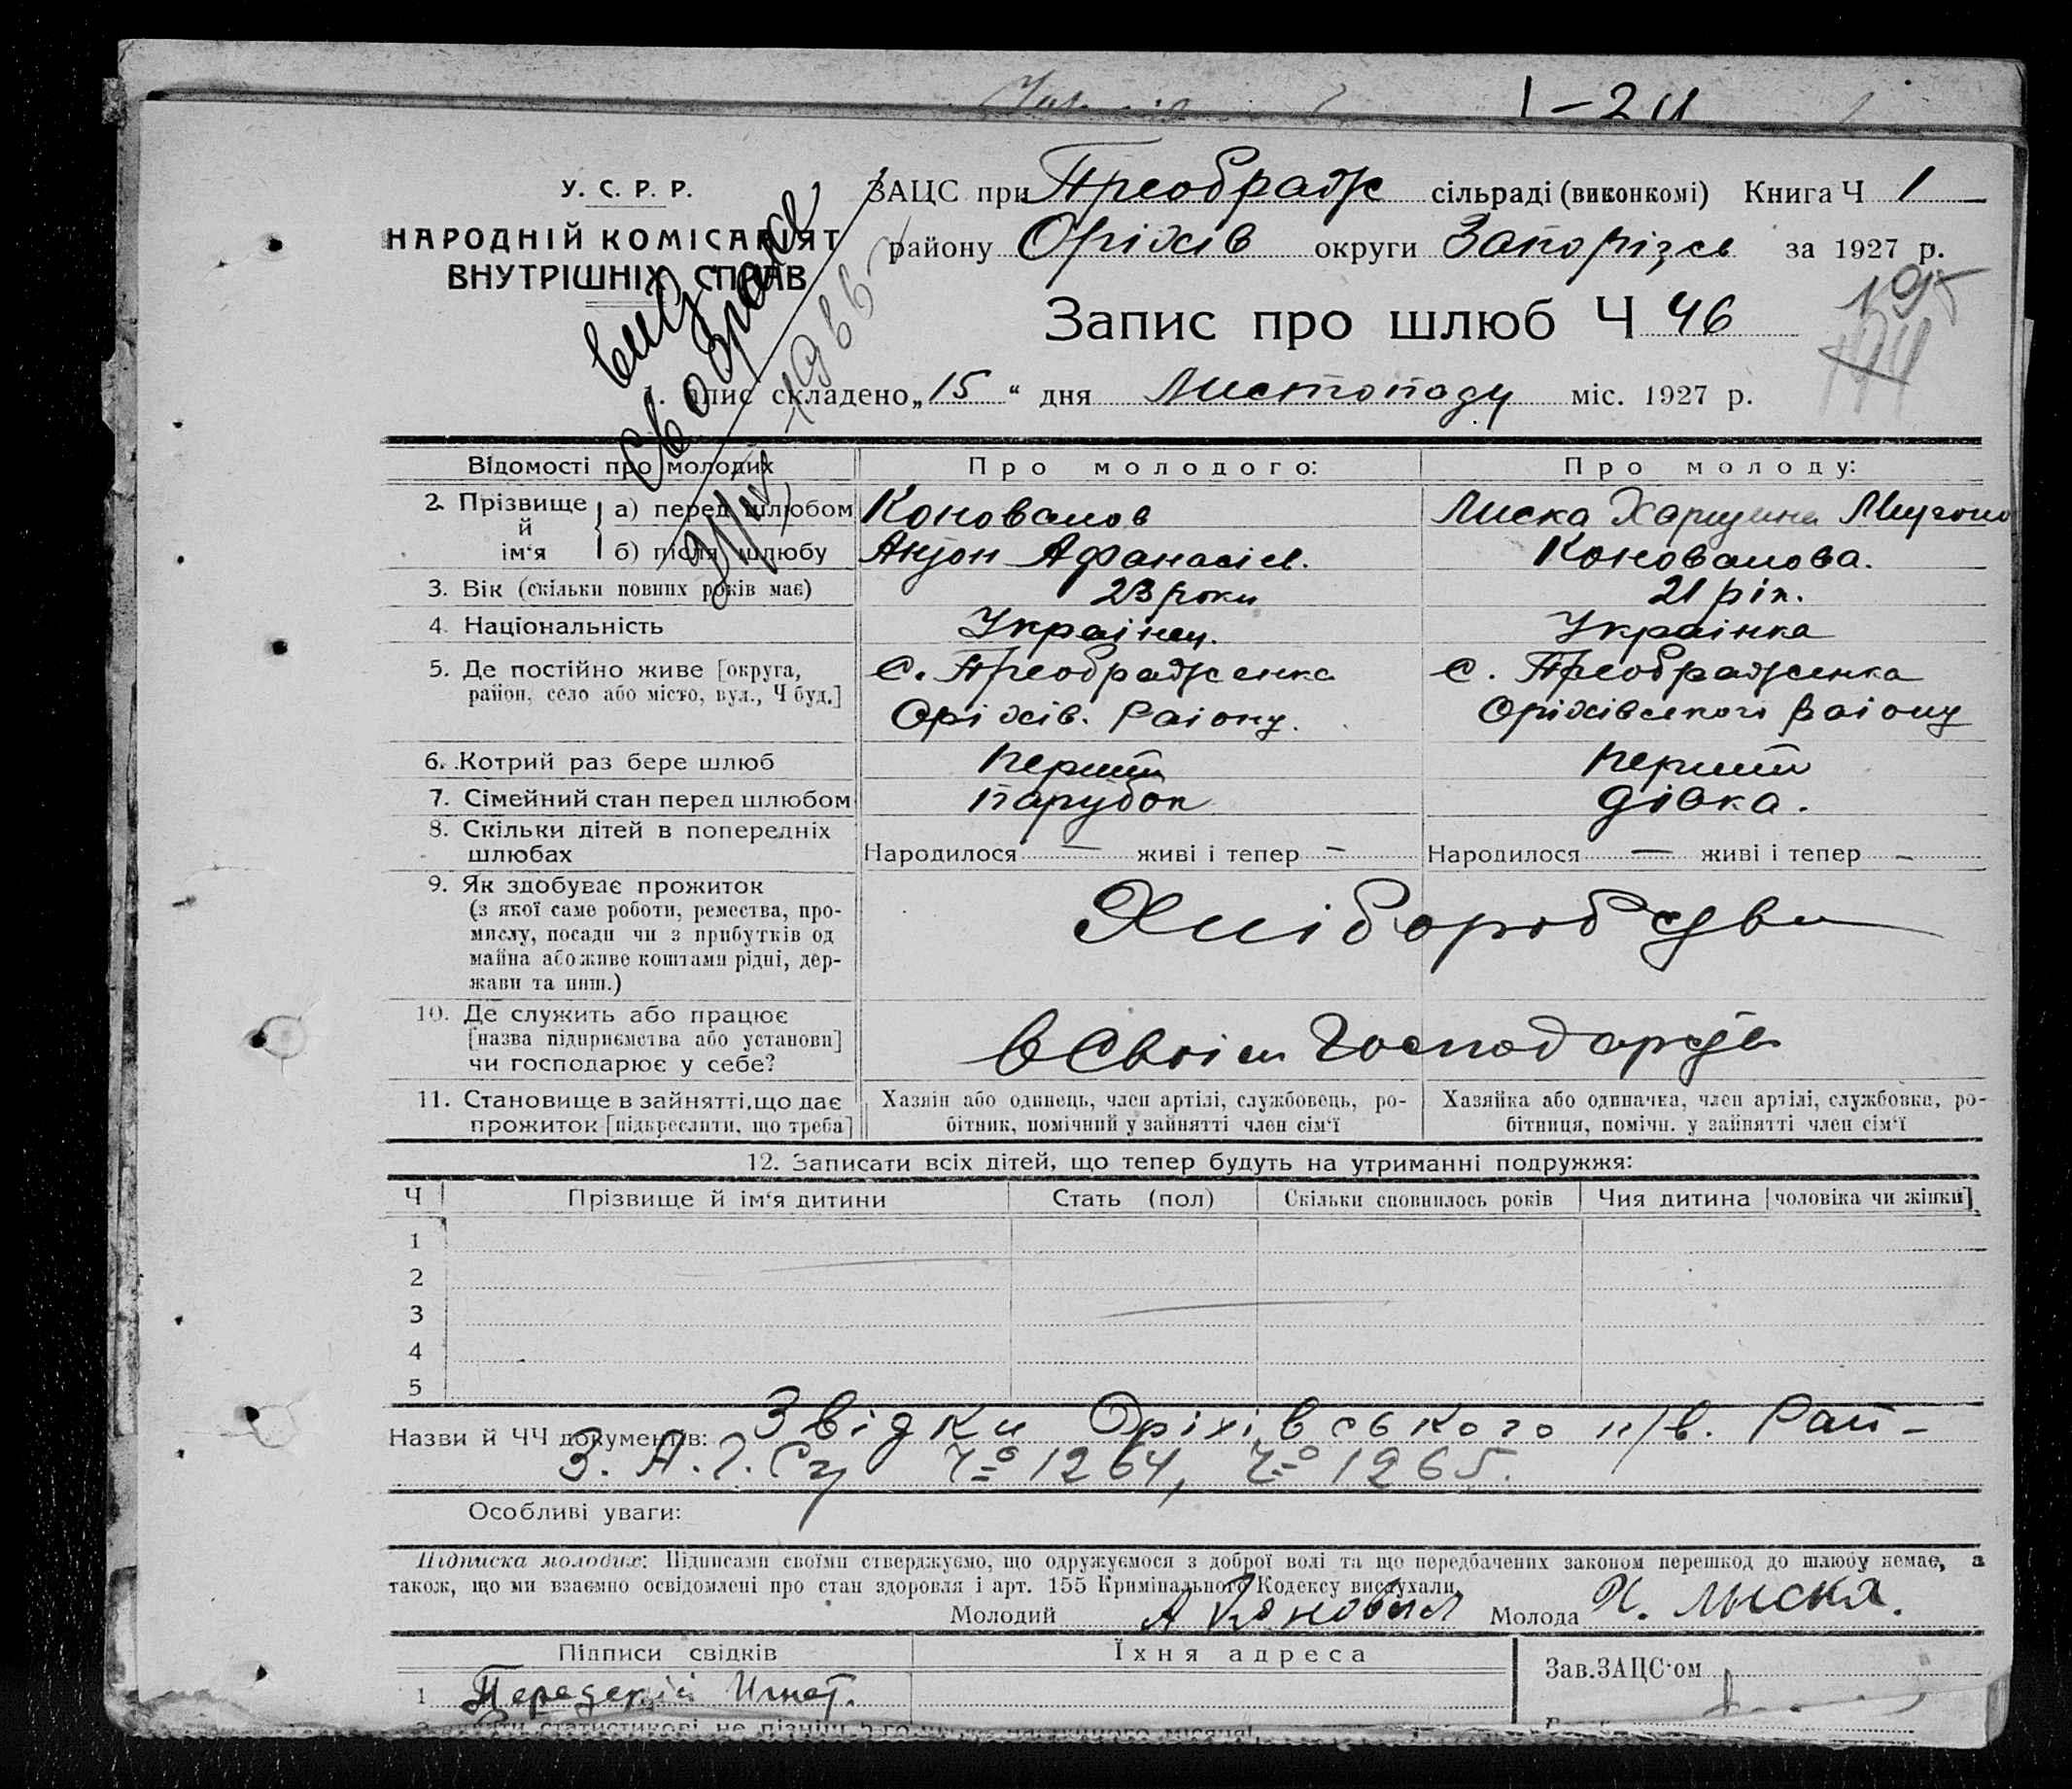 1-24
У. С. Р. Р.
НАРОДНІЙ КОМІСАРІЯТ
ВНУТРІШНІХ СПРАВ
ЗАЦС при Преображ сільраді (виконкомі) Книга Ч 1
району Оріхів округи Запорізьк за 1927 р.
Запис про шлюб Ч 46
195
194
1. Запис складено „15“ дня Листопаду міс. 1927 р.
Відомості про молодих Про молодого: Про молоду:
2. Прізвище й ім‘я а) перед шлюбом Коновалов Лиска
б) після шлюбу Антон Афанасіев. Коновалова.
3. Вік (скільки повних років має) 23 роки 21 рік.
4. Національність Украінец. Украінка
5. Де постійно живе [округа, с. Преображенка с. Преображенка
район, село або місто, вул., Ч буд.] Оріхів. Раіону. Оріхівського Раіону
6. Котрий раз бере шлюб перший перший
7. Сімейний стан перед шлюбом парубок дівка.
8. Скільки дітей в попередніх
шлюбах Народилося — живі і тепер - Народилося — живі і тепер -
9. Як здобуває прожиток
(з якої саме роботи, ремества, про-
мислу, посади чи з прибутків од
майна або живе коштами рідні, дер-
жави та инш.)
Хліборобство
10. Де служить або працює
[назва підприємства або установи]
чи господарює у себе?
в своім господарстві
11. Становище в зайнятті, що дає Хазяін або одинець, член артілі, службовець, ро- Хазяйка або одиначка, член артілі, службовка, ро-
прожиток [підкреслити, що треба] бітник, помічний у зайнятті член сім‘ї бітниця, помічн. у зайнятті член сім‘ї
12. Записати всіх дітей, що тепер будуть на утриманні подружжя:
Ч Прізвище й ім‘я дитини Стать (пол) Скільки сповнилось років Чия дитина [чоловіка чи жінки]
1
2
3
4
5
Назви й ЧЧ документів: Звідки Оріхівського Рай-
З. А. Г. Су Ч-º 1264, Ч-º 1265.
Особливі уваги:
Підписка молодих: Підписами своїми стверджуємо, що одружуємося з доброї волі та що передбачених законом перешкод до шлюбу немає, а
також, що ми взаємно освідомлені про стан здоровля і арт. 155 Кримінального Кодексу вислухали.
Молодий А Коновал Молода Х. Лиска.
Підписи свідків Їхня адреса Зав. ЗАЦС‘ом
1